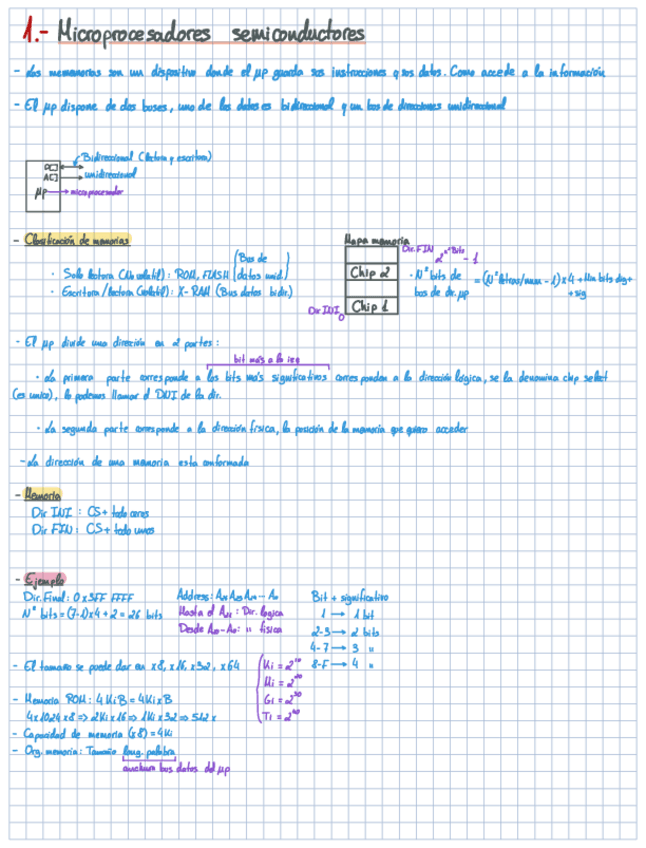 1.- Microprocesadores semiconductores
- Las mememorias son un dispositivo donde el µp guarda sus instrucciones y sus datos. Como accede a la información
- El µp dispone de dos buses, uno de los datos es bidireccional y un bus de direcciones unidireccional
Bidireccional (lectura y escritura)
D
unidireccional
A
µp
microprocesador
- Clasificación de memorias
· Solo lectura (No volatil): ROM, FLASH (Bus de datos unid.)
· Escritura/lectura (volatil): X-RAM (Bus datos bidir.)
Mapa memoria
Dir. FIN 2^(nº Bits) - 1
Chip 2
Chip 1
Dir INI 0
· Nº bits de bus de dir. µp = (Nº letras/num - 1) x 4 + Nm bits dig + + sig
- El µp divide una dirección en 2 partes:
bit más a la izq
· La primera parte corresponde a los bits más significativos corresponden a la dirección lógica, se la denomina chip select
(es unico), lo podemos llamar el DNI de la dir.
· La segunda parte corresponde a la dirección física, la posición de la memoria que quiero acceder
- La dirección de una memoria esta conformada
- Memoria
Dir INI : CS + todo ceros
Dir FIN : CS + todo unos
- Ejemplo
Dir. Final: 0x3FF FFFF
Nº bits = (7-1)x4 + 2 = 26 bits
Address:
Hasta el : Dir. logica
Desde - A0 : " fisica
Bit + significativo
1 → 1 bit
2-3 → 2 bits
4-7 → 3 "
8-F → 4 "
- El tamaño se puede dar en x8, x16, x32, x64
Ki = 2^10
Mi = 2^20
Gi = 2^30
Ti = 2^40
- Memoria ROM: 4 KiB = 4Ki x B
4x1024 x 8 => 2Ki x 16 => 1Ki x 32 => 512 x
- Capacidad de memoria (x8) = 4Ki
- Org. memoria: Tamaño long. palabra
anchura bus datos del µp